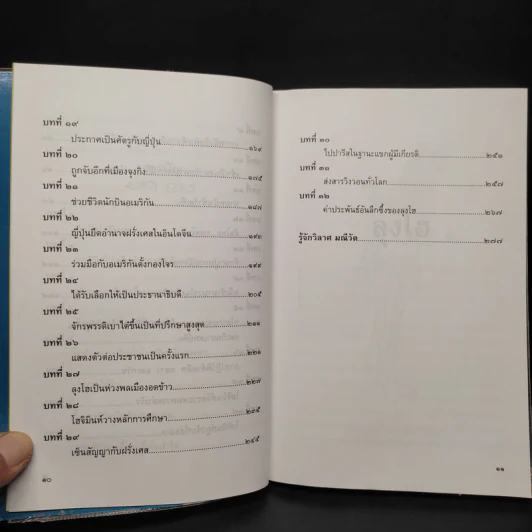 บทที่ ๑๙
ประกาศเป็นศัตรูกับญี่ปุ่น.....................๑๖๙
บทที่ ๒๐
ถูกจับอีกที่เมืองจุงกิง.....................๑๗๕
บทที่ ๒๑
ช่วยชีวิตนักบินอเมริกัน.....................๑๘๗
บทที่ ๒๒
ญี่ปุ่นยึดอำนาจฝรั่งเศสในอินโดจีน.....................๑๙๓
บทที่ ๒๓
ร่วมมือกับอเมริกันตั้งกองโจร.....................๑๙๙
บทที่ ๒๔
ได้รับเลือกให้เป็นประธานาธิบดี.....................๒๐๕
บทที่ ๒๕
จักรพรรดิเบาได๋ขึ้นเป็นที่ปรึกษาสูงสุด.....................๒๑๑
บทที่ ๒๖
แสดงตัวต่อประชาชนเป็นครั้งแรก.....................๒๒๑
บทที่ ๒๗
ลุงโฮเป็นห่วงพลเมืองอดข้าว.....................๒๒๗
บทที่ ๒๘
โฮจิมินห์วางหลักการศึกษา.....................๒๓๕
บทที่ ๒๙
เซ็นสัญญากับฝรั่งเศส.....................๒๔๕
๑๐
บทที่ ๓๐
ไปปารีสในฐานะแขกผู้มีเกียรติ.....................๒๕๑
บทที่ ๓๑
ส่งสารวิงวอนทั่วโลก.....................๒๕๗
บทที่ ๓๒
คำประพันธ์อันลึกซึ้งของลุงโฮ.....................๒๖๗
รู้จักวิลาศ มณีวัต.....................๒๗๗
๑๑